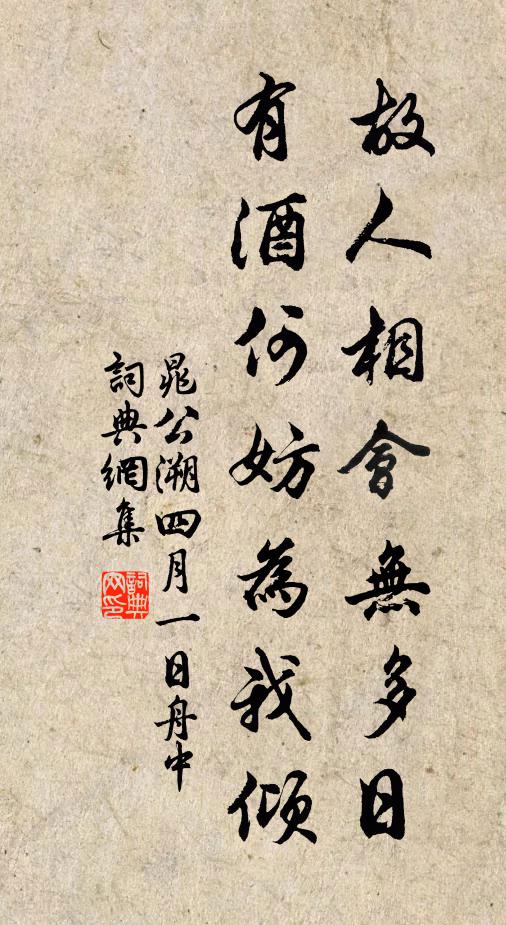 故人相會無多日
有酒何妨為我傾
晁公溯四月一日舟中
詞典網集
詞典网印